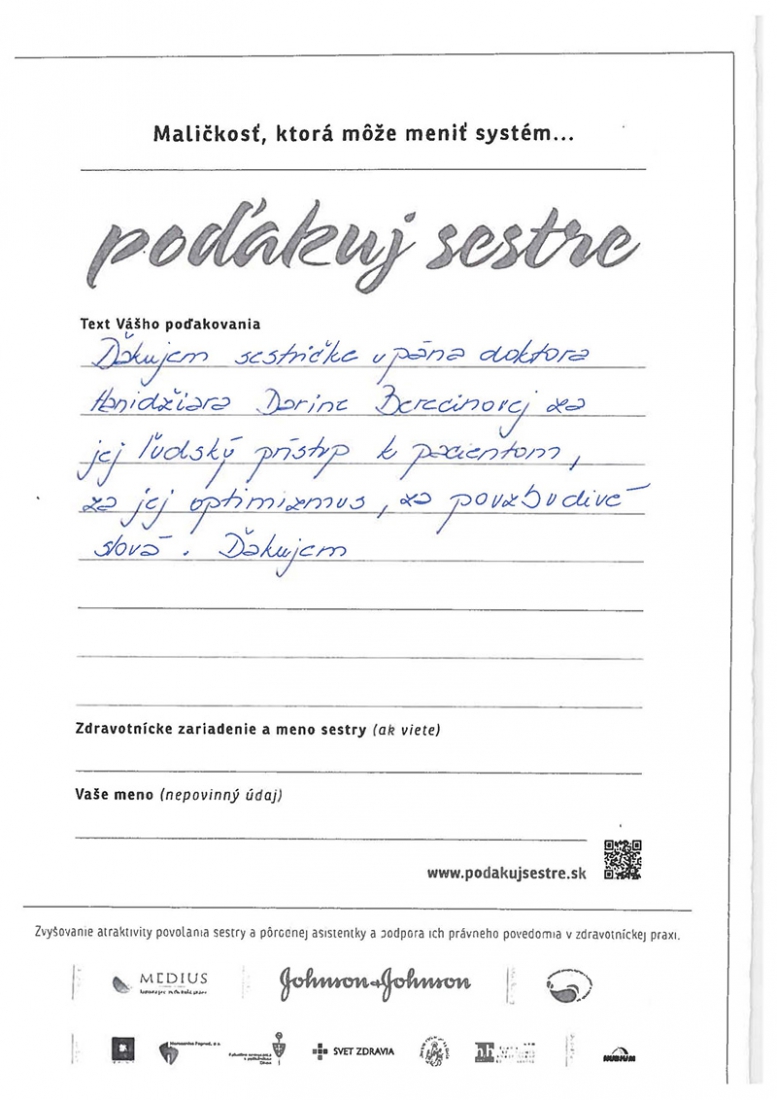 Maličkosť, ktorá môže meniť systém...
poďakuj sestre
Text Vášho poďakovania
Ďakujem sestričke u pána doktora
Hanidžiara Darine Berecinovej za
jej ľudský prístup k pacientom,
za jej optimizmus, za povzbudivé
slová. Ďakujem
Zdravotnícke zariadenie a meno sestry (ak viete)
Vaše meno (nepovinný údaj)
www.podakujsestre.sk
Zvyšovanie atraktivity povolania sestry a pôrodnej asistentky a podpora ich právneho povedomia v zdravotníckej praxi.
MEDIUS
Johnson & Johnson
SVET ZDRAVIA